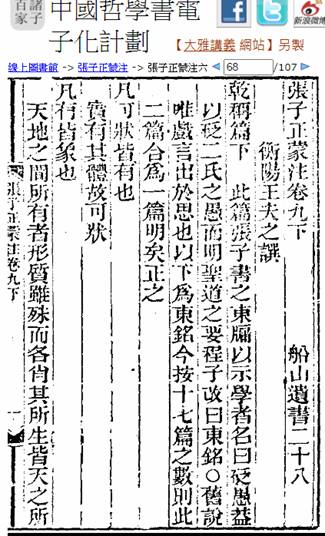 諸子百家
中國哲學書電子化計劃
f
t
新浪微博
【大雅講義 網站】另製
線上圖書館 -> 張子正蒙注 -> 張子正蒙注六
68 /107
張子正蒙注卷九下
船山遺書二十八
衡陽王夫之譔
乾稱篇下 此篇張子書之東牖以示學者名曰砭愚益
以砭二氏之愚而明聖道之要程子改曰東銘○舊說
唯戲言出於思也以下為東銘今按十七篇之數則此
二篇合為一篇明矣正之
凡可狀皆有也
實有其體故可狀
凡有皆象也
天地之間所有者形質雖殊而各肖其所生皆天之所
張子正蒙注卷九下
一